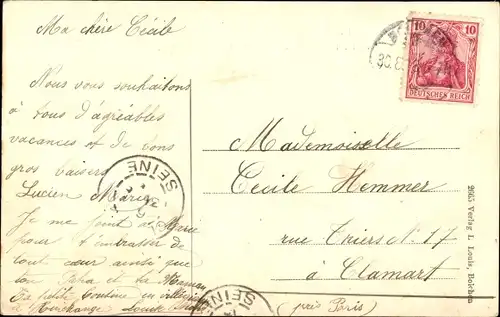 Ma chère Cécile
Nous vous souhaitons
à tous d'agréables
vacances et de bons
gros baisers
Lucien Marie
Je me joint à Marie
pour t'embrasser de
tout cœur ainsi que
ton Papa et ta Maman
Ta petite Cousine en
à Louise
SEINE
SEINE
10 10
DEUTSCHES REICH
30.8
Mademoiselle
Cecile Hemmer
rue Thiers No. 17
à Clamart
(près Paris)
2665 Verlag L. Louis, Bolchen